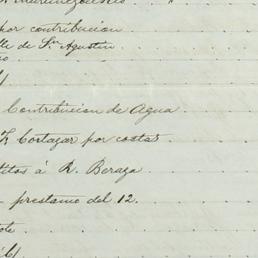 por contribucion
lle de Sn Agustin
no
Contribucion de Agua
Cortazar por costas
titos á R. Beraza
prestamo del 12.
ote